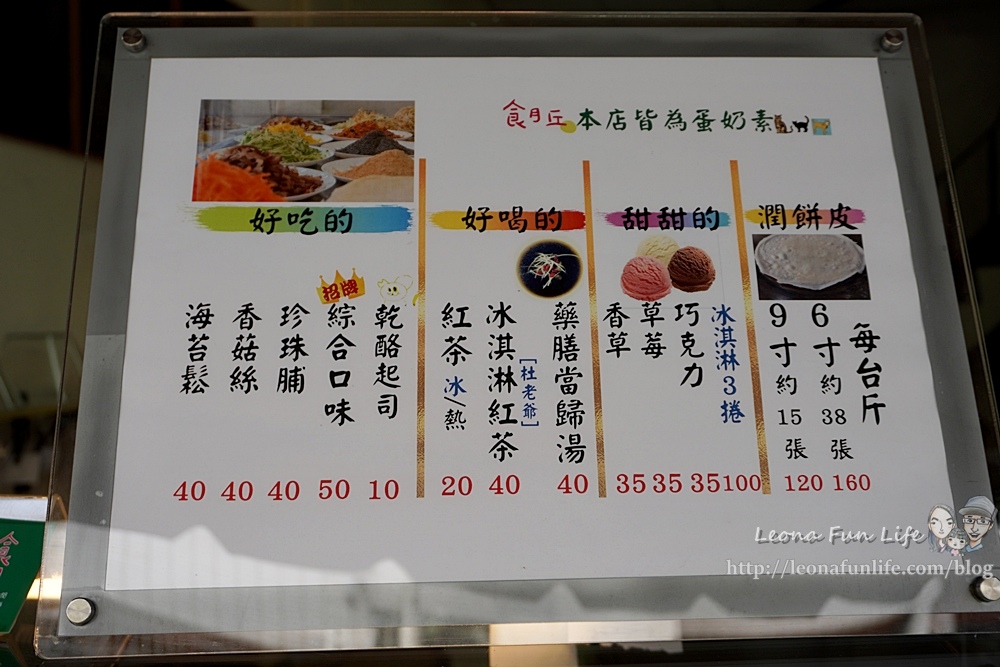 食月丘 本店皆為蛋奶素
好吃的
海苔鬆 40
香菇絲 40
珍珠脯 40
招牌
綜合口味 50
乾酪起司 10
好喝的
紅茶 冰/熱 20
冰淇淋紅茶 [杜老爺] 40
藥膳當歸湯 40
甜甜的
香草 35
草莓 35
巧克力 35
冰淇淋3捲 100
潤餅皮
9寸約15張 120
6寸約38張 160
每台斤
Leona Fun Life
http://leonafunlife.com/blog